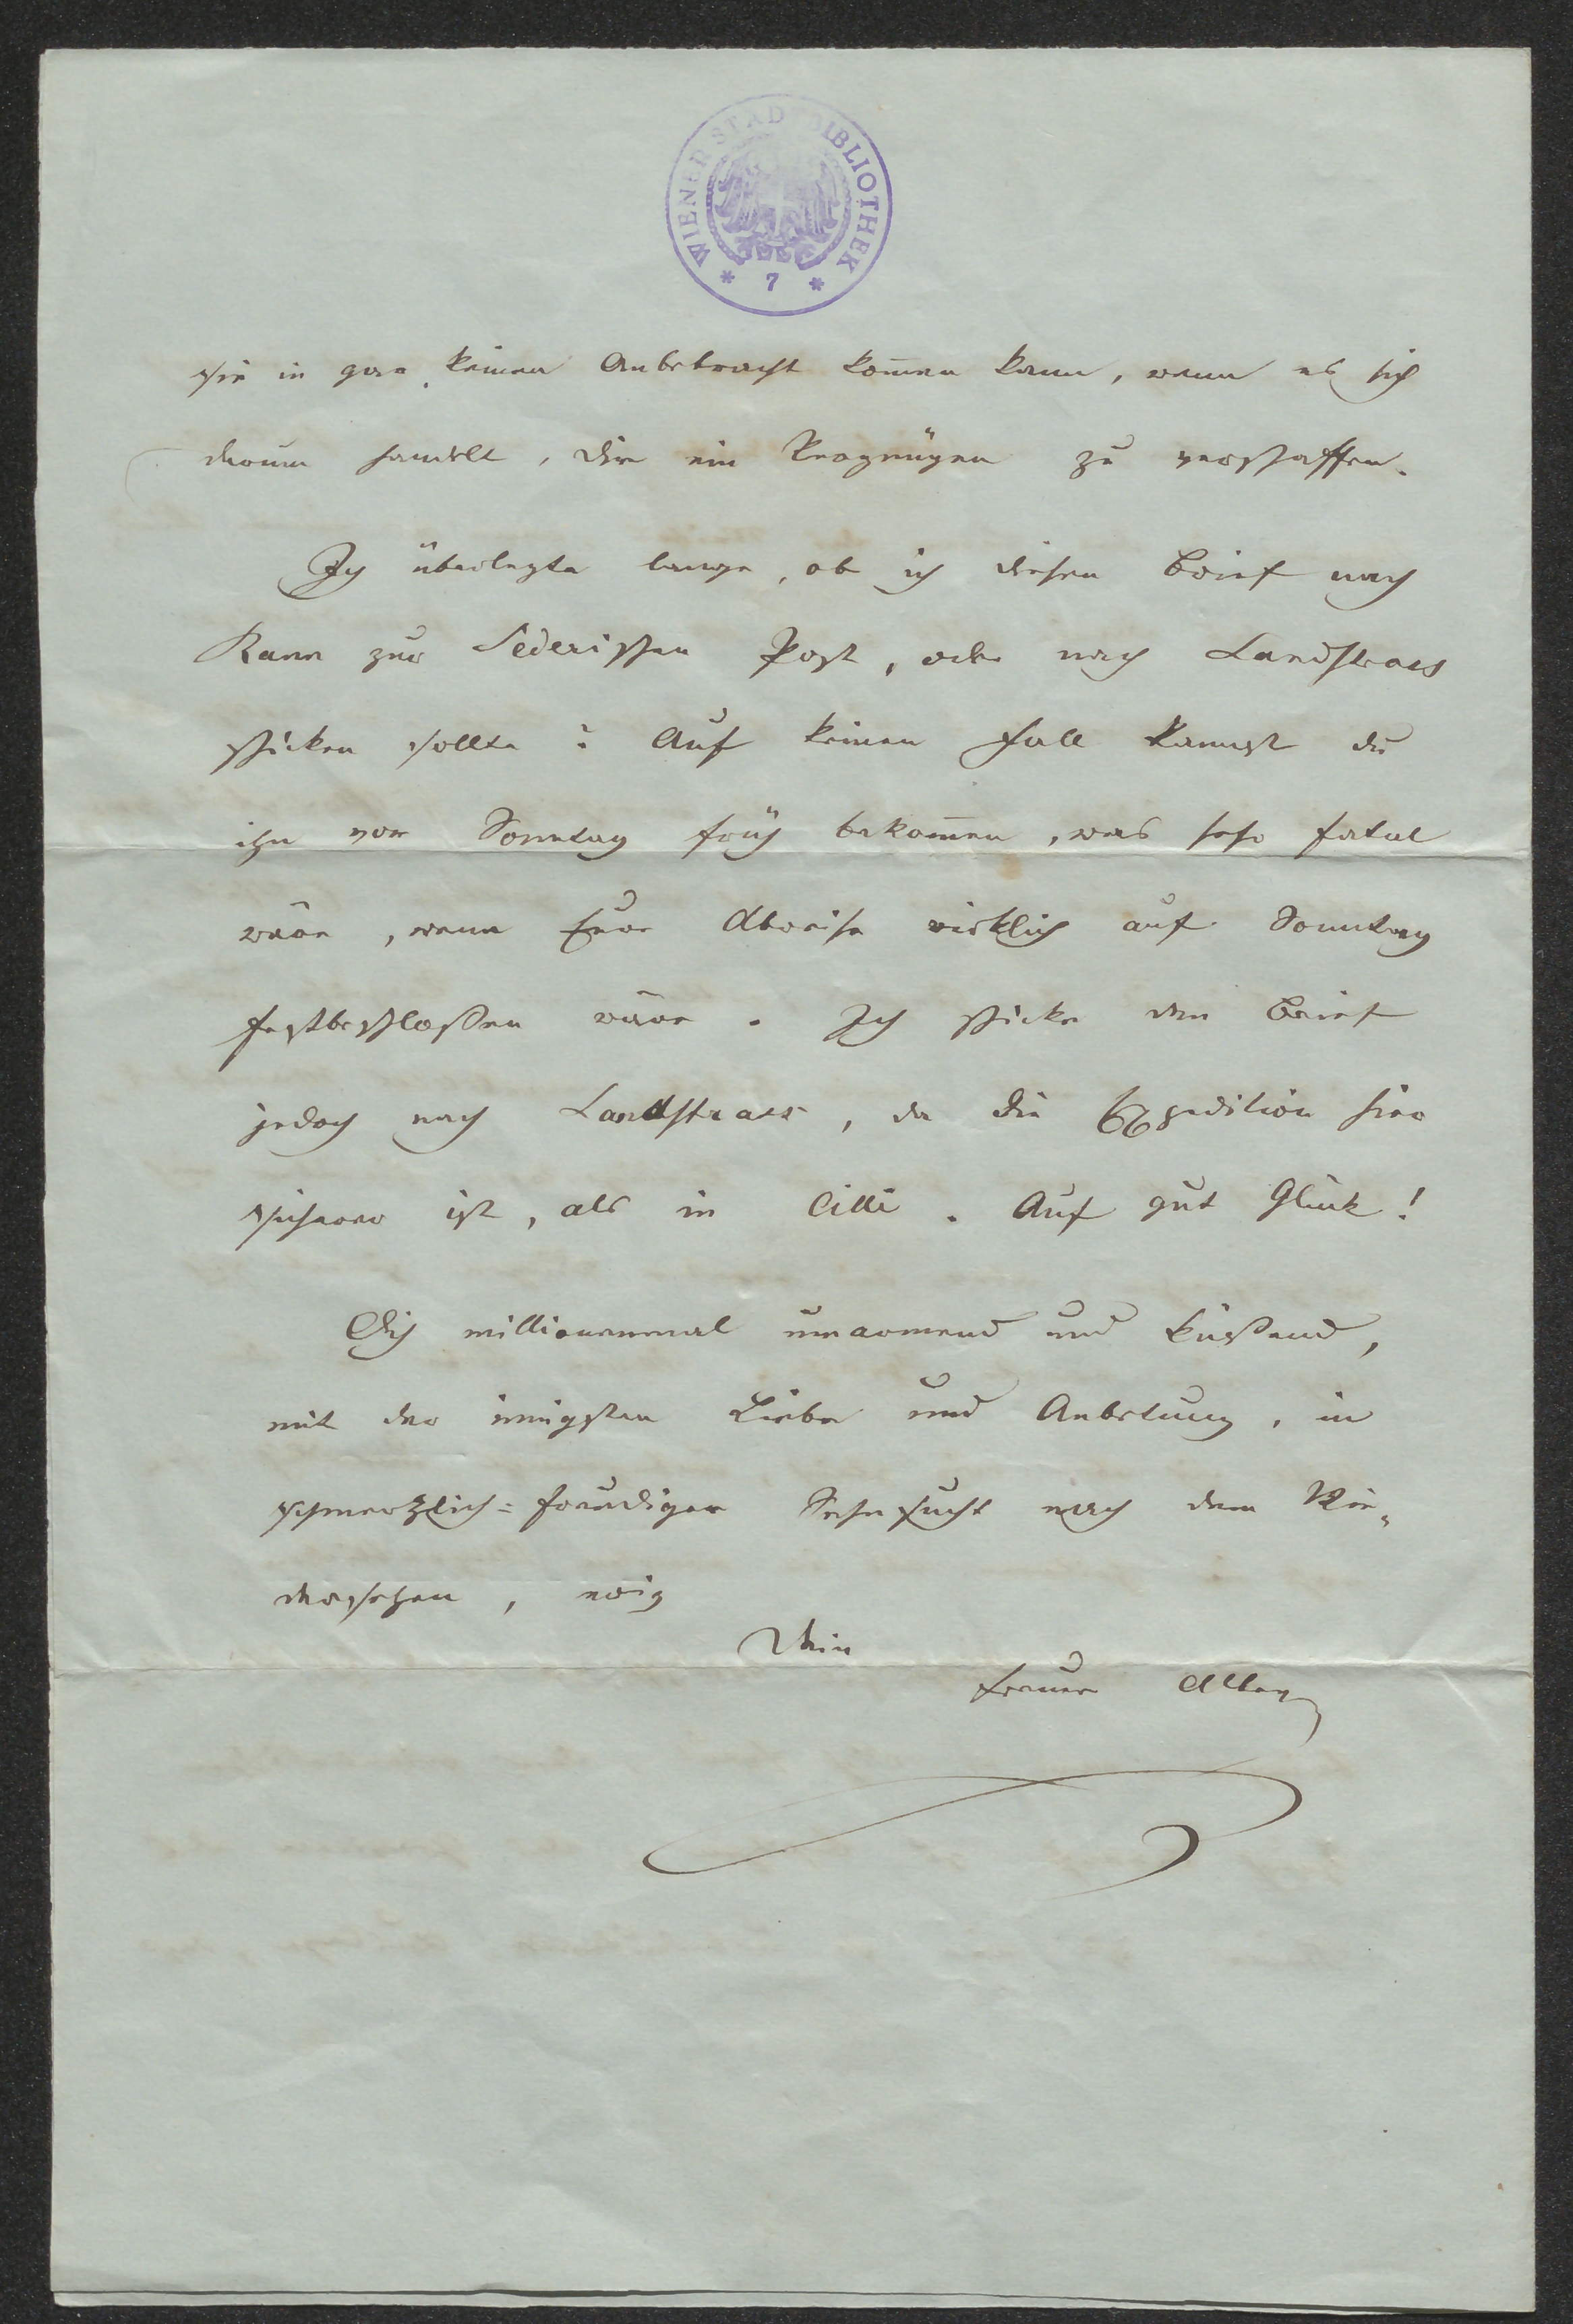 WIENER STADTBIBLIOTHEK
* 7 *
sie in gar keinen Anbetracht kom̄en kann, wenn es sich
darum handelt, dir ein Vergnügen zu verschaffen.
Ich überlegte lange, ob ich diesen Brief nach
Rann zur Federischen Post, oder nach Landstrass
schicken sollte? Auf keinen Fall kannst du
ihn vor Sonntag früh bekom̄en, was sehr fatal
wäre, wenn Eure Abreise wirklich auf Sonntag
festbeschloßen wäre. Ich schicke den Brief
jedoch nach Landstrass, da die Expedition hier
sicherer ist, als in Cilli. Auf gut Glück!
Dich millionenmal umarmend und küßend,
mit der innigsten Liebe und Anbetung, in
schmerzlich=freudiger Sehnsucht nach dem Wie„
dersehen, ewig
Dein
treuer Alter